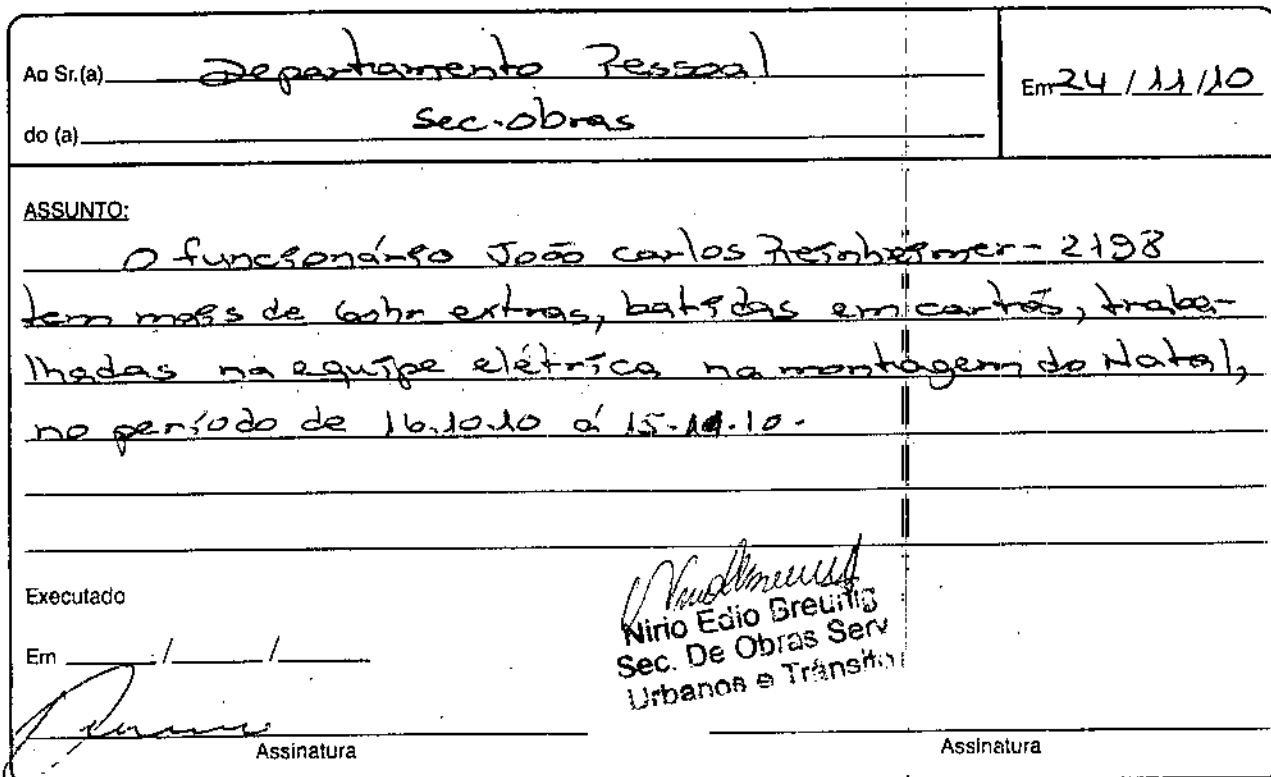 Ao Sr.(a) Departamento Pessoal
Em 24/11/10
do (a) Sec. obras
ASSUNTO:
O funcionário João carlos Reinheimer - 2198
tem mais de 60hr extras, batidas em cartão, traba-
lhadas na equipe elétrica na montagem do Natal,
no período de 16.10.10 á 15.11.10.
Executado
Em / /
Nirio Edio Breunig
Sec. De Obras Serv
Urbanos e Trânsito
Assinatura
Assinatura